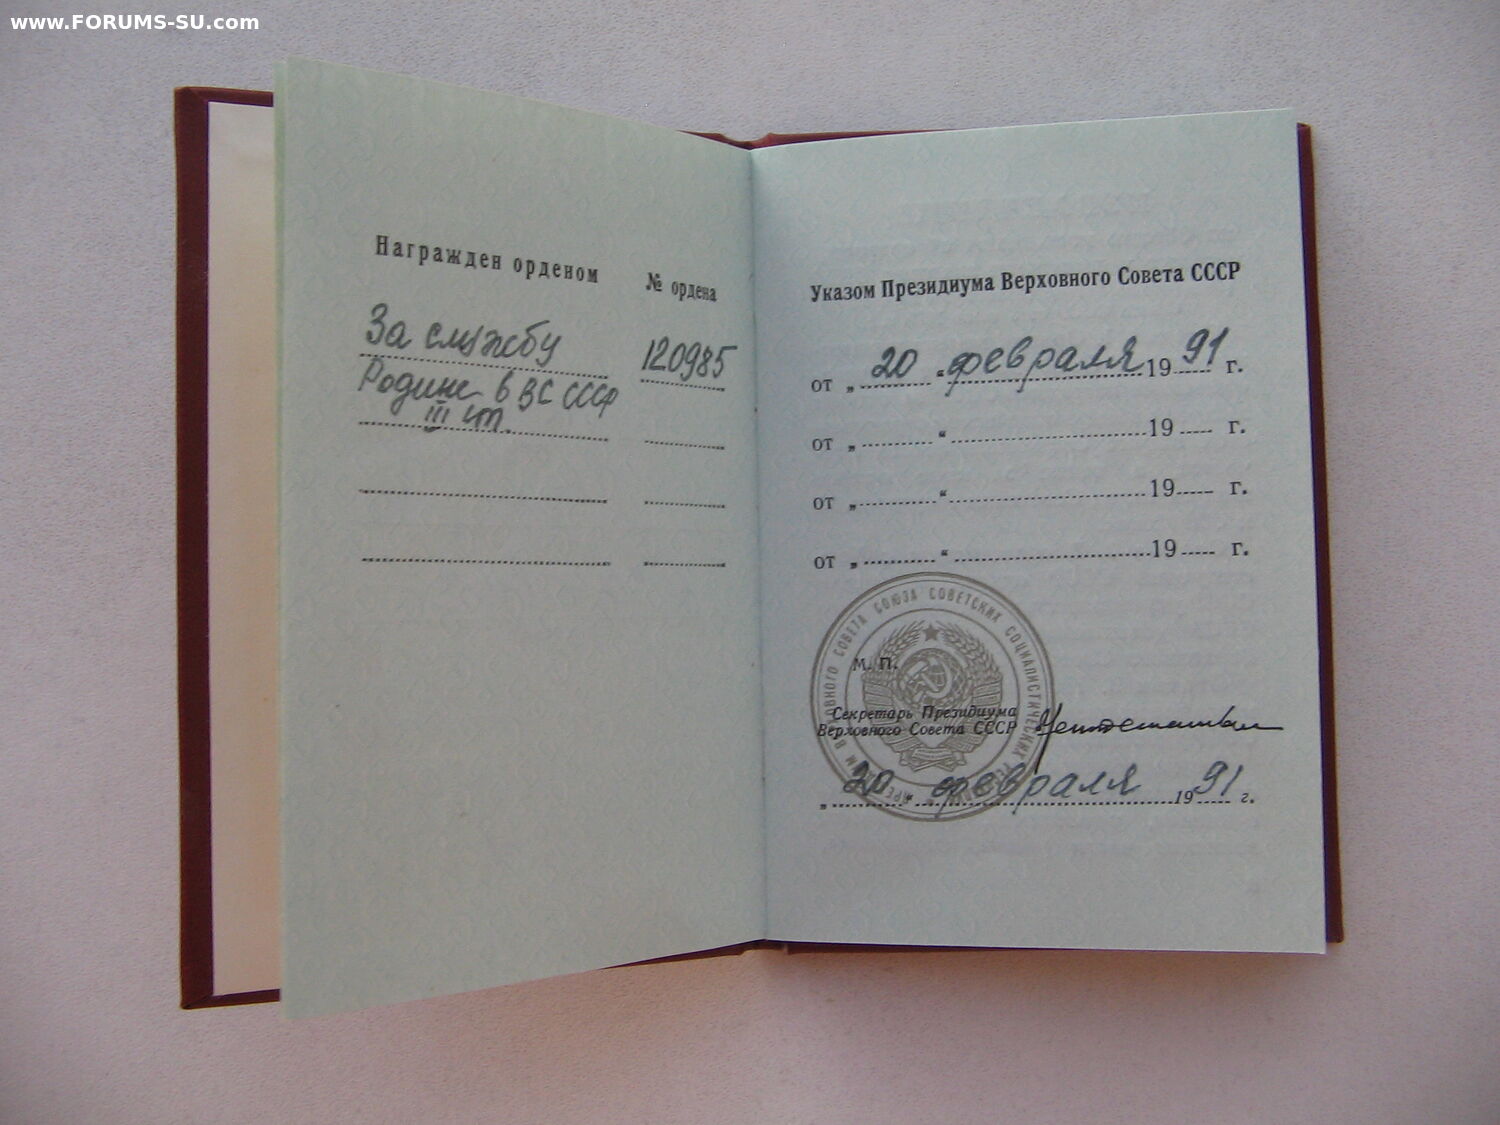 www.FORUMS-SU.com
Награжден орденом
№ ордена
За службу
120985
Родине в ВС СССР
III ст.
Указом Президиума Верховного Совета СССР
от „ 20 “ февраля 1991 г.
от „ “ 19 г.
от „ “ 19 г.
от „ “ 19 г.
ВЕРХОВНОГО СОВЕТА СОЮЗА СОВЕТСКИХ СОЦИАЛИСТИЧЕСКИХ
М. П.
Секретарь Президиума
Верховного Совета СССР
„ 20 “ февраля 1991 г.